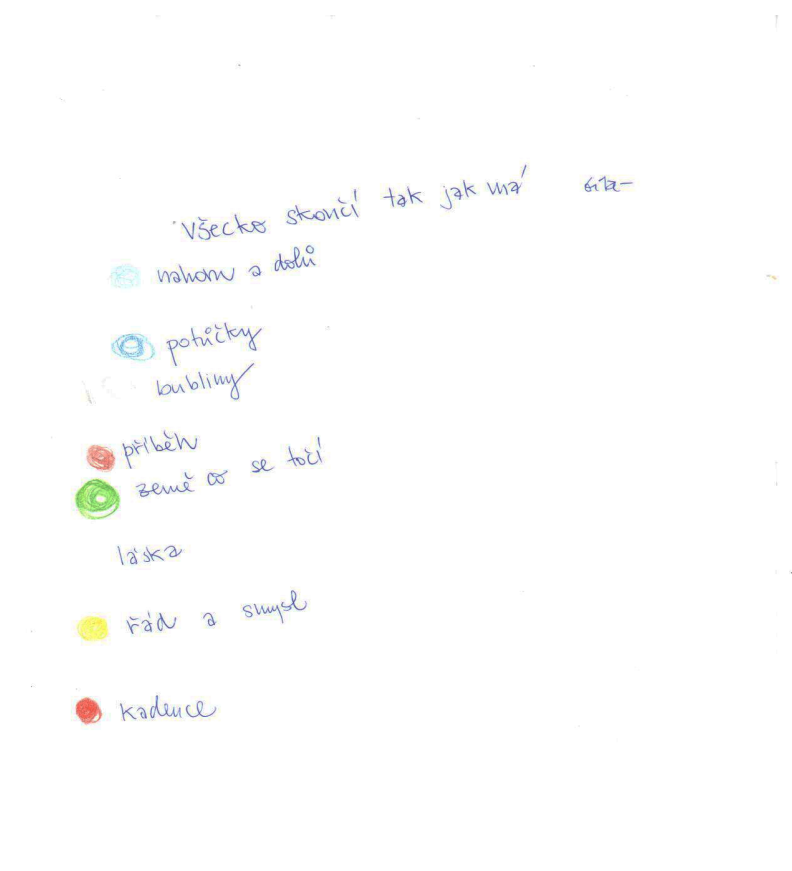 Všecko skončí tak jak má síla-
nahoru a dolů
potůčky
bubliny
příběh
země co se točí
láska
řád a smysl
kadence